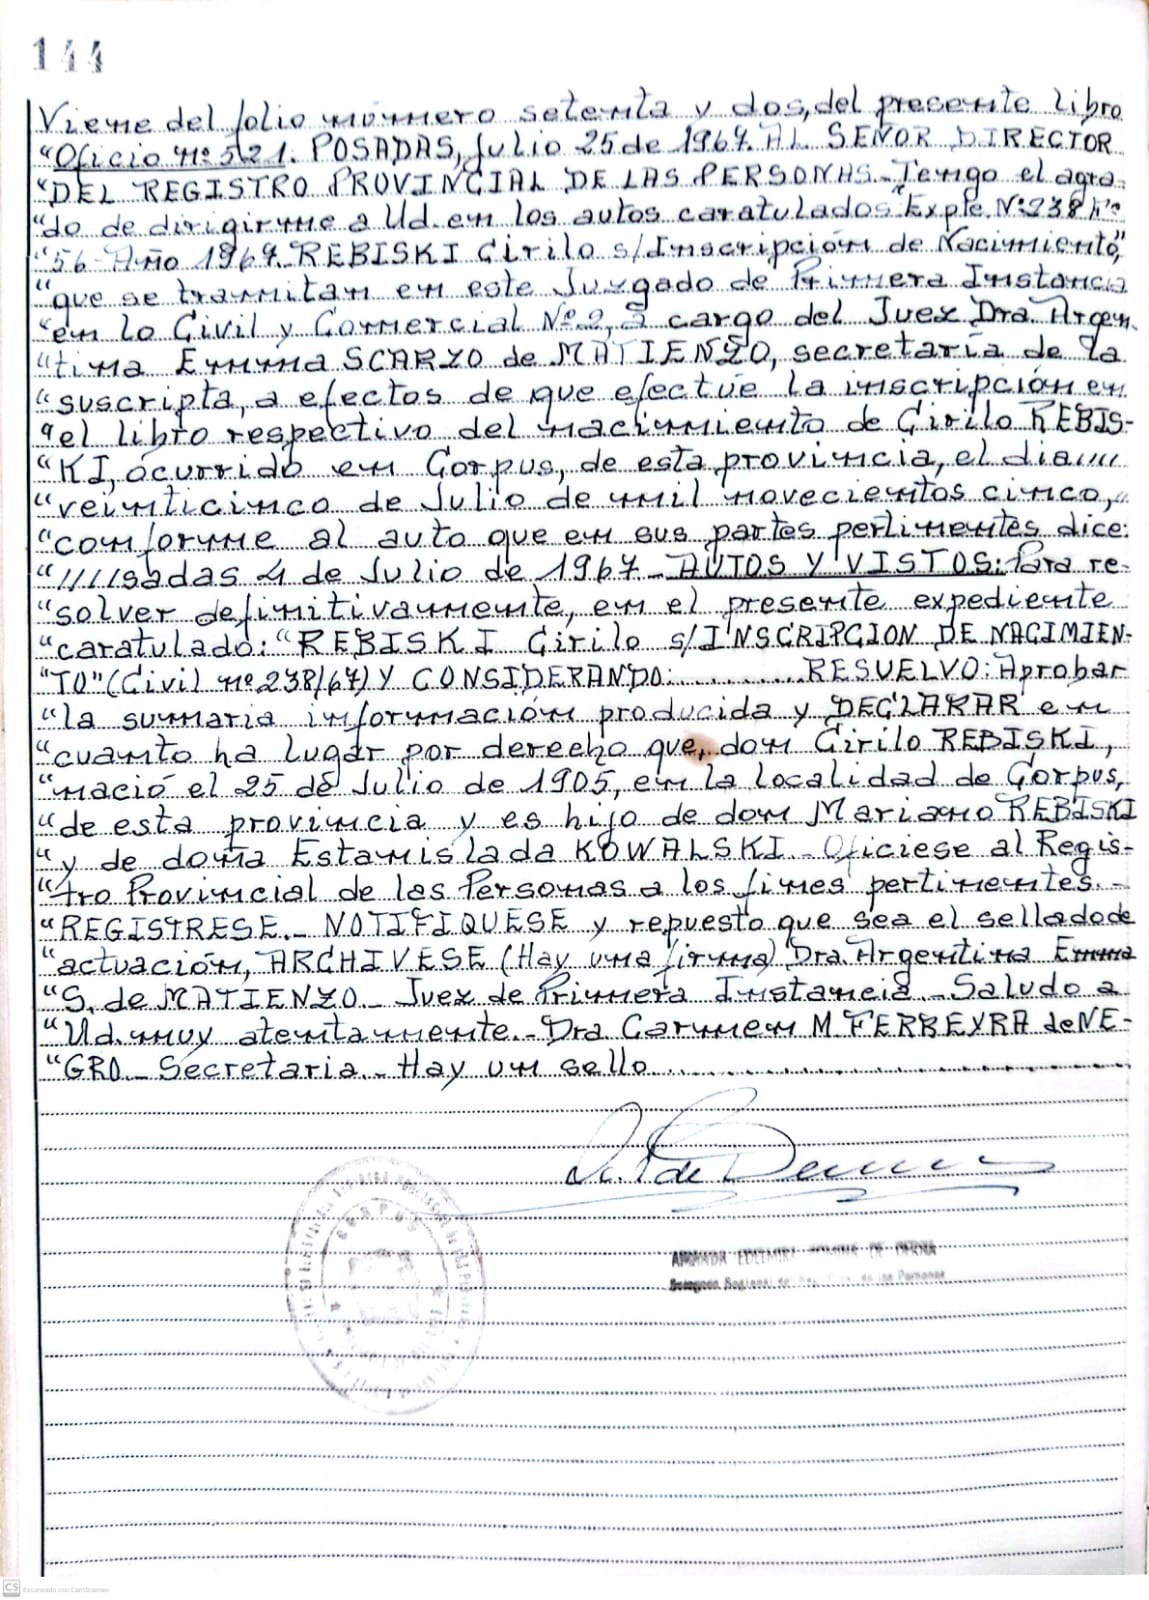 144
Viene del folio número setenta y dos, del presente libro
"Oficio nº 521. POSADAS, Julio 25 de 1967. AL SEÑOR DIRECTOR
"DEL REGISTRO PROVINCIAL DE LAS PERSONAS._Tengo el agra-
"do de dirigirme a Ud. en los autos caratulados "Expte. Nº 238 Fº
"56 Año 1967._REBISKI Cirilo s/Inscripción de Nacimiento",
"que se tramitan en este Juzgado de Primera Instancia
"en lo Civil y Comercial Nº 2, a cargo del Juez Dra. Argen-
"tina Emma SCARZO de MATIENZO, secretaría de la
"suscripta, a efectos de que efectúe la inscripción en
"el libro respectivo del nacimiento de Cirilo REBIS-
"KI, ocurrido en Corpus, de esta provincia, el dia////
"veinticinco de Julio de mil novecientos cinco,//
"conforme al auto que en sus partes pertinentes dice:
"/////sadas 4 de Julio de 1967._AUTOS Y VISTOS: Para re-
"solver definitivamente, en el presente expediente
"caratulado: "REBISKI Cirilo s/INSCRIPCION DE NACIMIEN-
"TO" (Civil nº 238/67) Y CONSIDERANDO:..........RESUELVO: Aprobar
"la sumaria información producida y DECLARAR en
"cuanto ha lugar por derecho que, don Cirilo REBISKI,
"nació el 25 de Julio de 1905, en la localidad de Corpus,
"de esta provincia y es hijo de don Mariano REBISKI
"y de doña Estanislada KOWALSKI._Oficiese al Regis-
"tro Provincial de las Personas a los fines pertinentes.-
"REGISTRESE._ NOTIFIQUESE y repuesto que sea el sellado de
"actuación, ARCHIVESE (Hay una firma) Dra. Argentina Emma
"S. de MATIENZO._ Juez de Primera Instancia._Saludo a
"Ud. muy atentamente._Dra Carmen M. FERREYRA de NE-
"GRO._Secretaria._Hay un sello..............
CORPUS
EDELMIRA DE
Regional del de las Personas
CS Escaneado con CamScanner